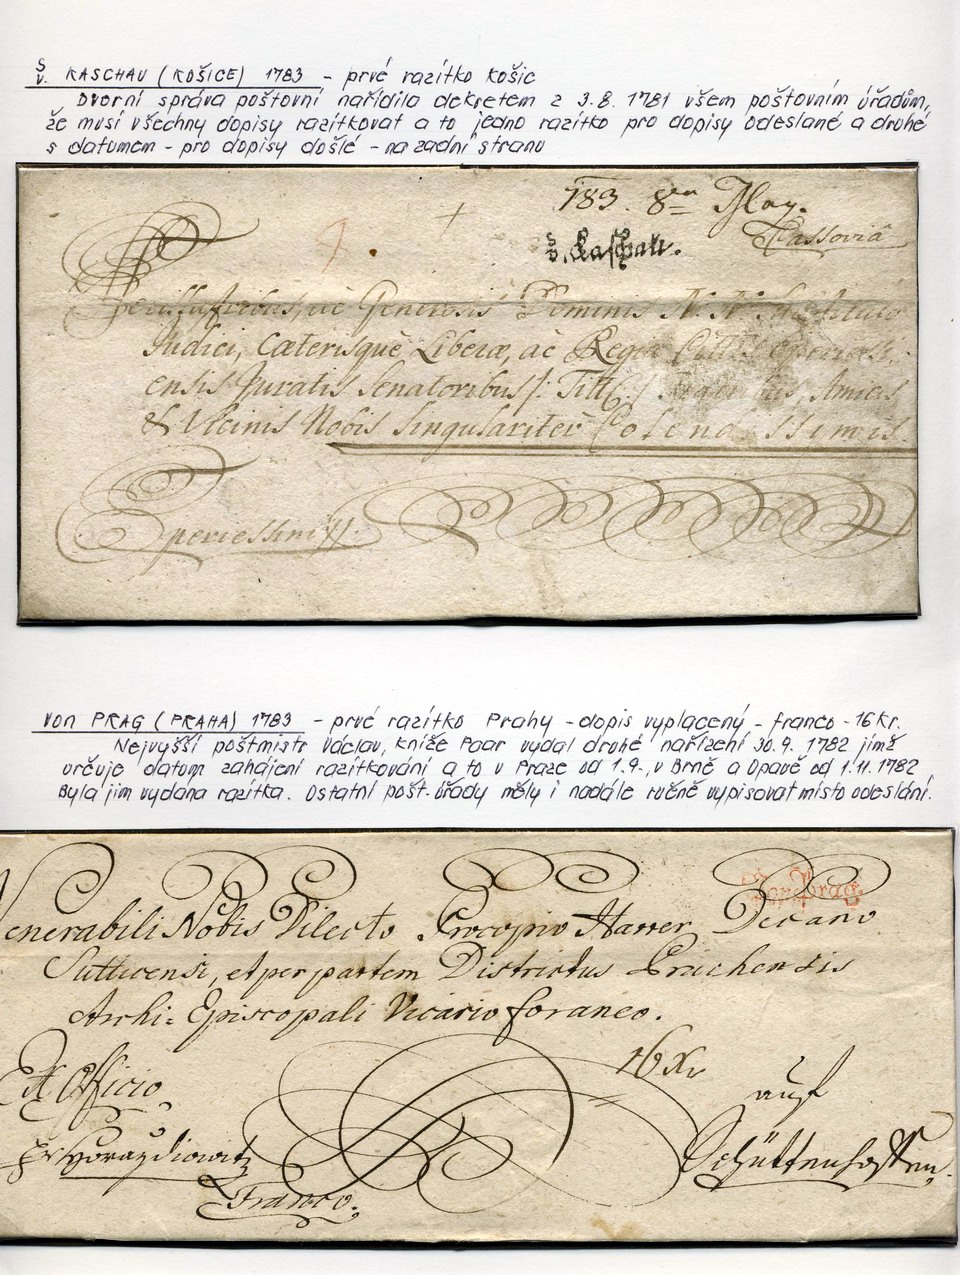 S
v. KASCHAU (KOŠICE) 1783 - prvé razítko Košic
Dvorní správa poštovní nařídila dekretem z 3.8. 1781 všem poštovním úřadům,
že musí všechny dopisy razítkovat a to jedno razítko pro dopisy odeslané a druhé
s datumem - pro dopisy došlé - na zadní stranu
783. 8va May.
Cassoviâ
v. Kaschau.
Perillustribus, ac Generosis Dominis N. N.
Judici, Cæterisquè Liberæ, ac Regiæ
ensis Juratis Senatoribus /: Titt: / Amicis,
& Vicinis Nobis Singulariter Colendissimis.
Eperiessini
VON PRAG (PRAHA) 1783 - prvé razítko Prahy - dopis vyplacený - franco - 16 kr.
Nejvyšší poštmistr Václav, kníže Paar vydal druhé nařízení 30.9. 1782 jímž
určuje datum zahájení razítkování a to v Praze od 1.9., v Brně a Opavě od 1.11.1782
Byla jim vydána razítka. Ostatní pošt. úřady měly i nadále ručně vypisovat místo odeslání.
Von Prag
Venerabili Nobis Dilecto Procopio Harrer Decano
Sutticensi, et per partem Districtus Prachensis
Archi-Episcopali Vicario foraneo.
Ex Officio
16 Xr
auf
pr Horazdiowitz
Schüttenhoffen.
Franco.